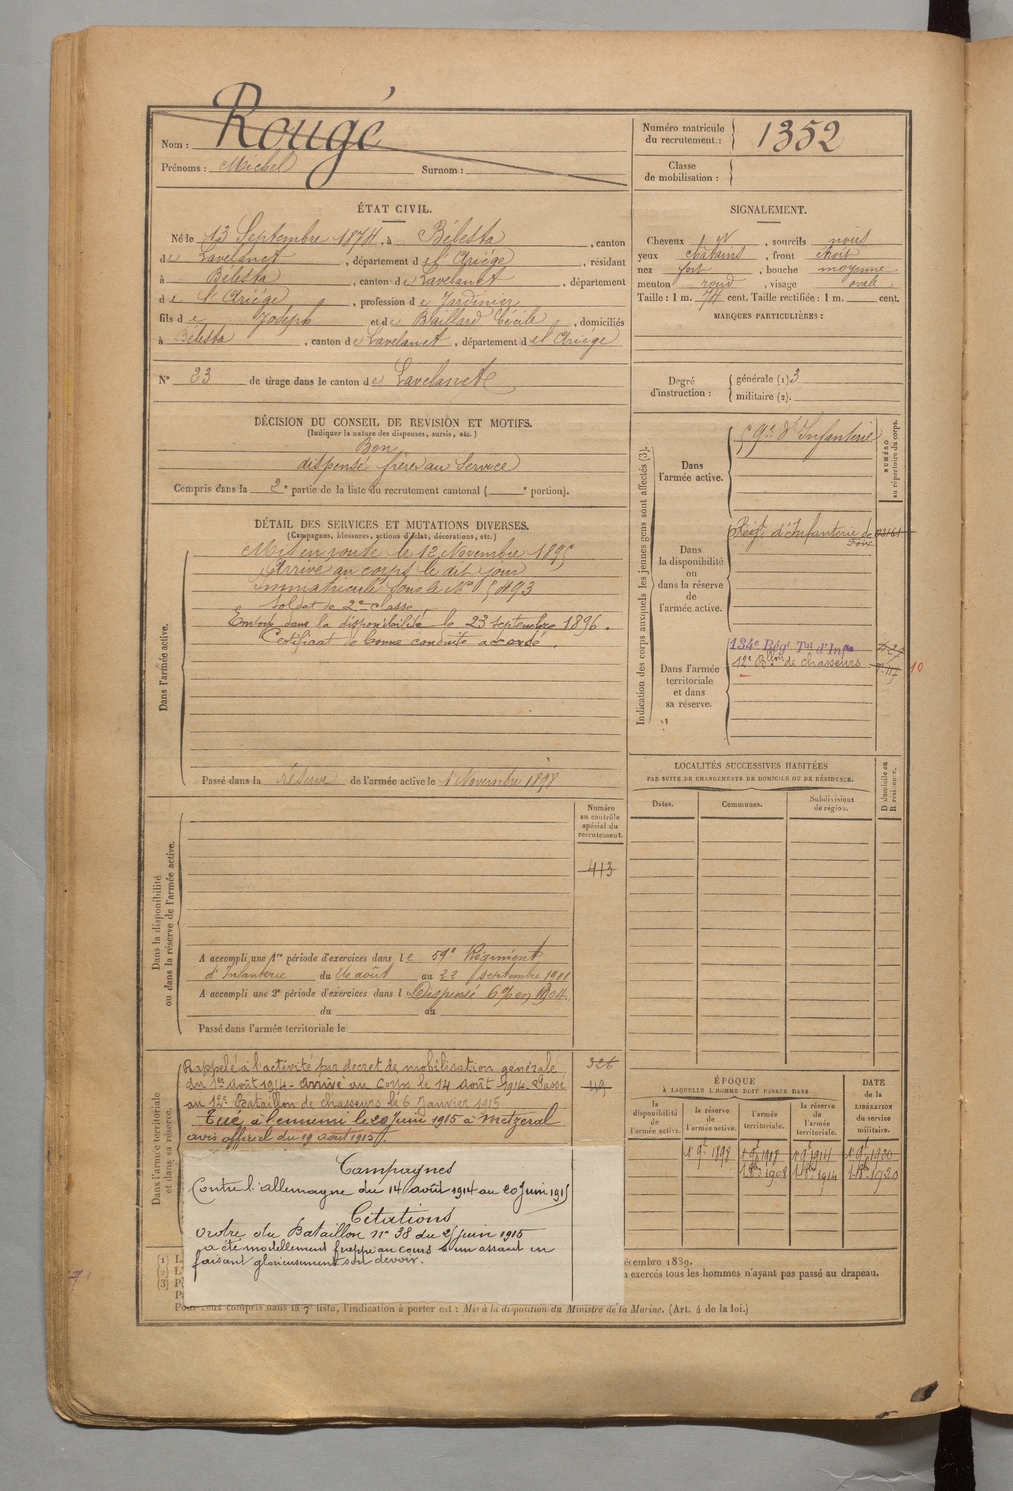 Nom : Rougé
Prénoms : Michel Surnom :
Numéro matricule du recrutement : 1352
Classe de mobilisation :
ÉTAT CIVIL.
Né le 13 Septembre 1874, à Bélesta, canton
de Lavelanet, département de l'Ariège, résidant
à Bélesta, canton de Lavelanet, département
de l'Ariège, profession de Jardinier
fils de Joseph et de Baillard Cécile, domiciliés
à Bélesta, canton de Lavelanet, département de l'Ariège
N° 33 de tirage dans le canton de Lavelanet
SIGNALEMENT.
Cheveux et, sourcils noirs
yeux châtains, front étroit
nez fort, bouche moyenne
menton rond, visage ovale
Taille : 1 m. 74 cent. Taille rectifiée : 1 m. cent.
MARQUES PARTICULIÈRES :
Degré d'instruction : générale (1) 3
militaire (2).
DÉCISION DU CONSEIL DE REVISION ET MOTIFS.
(Indiquer la nature des dispenses, sursis, etc.)
Bon
dispensé frère au Service
Compris dans la 2e partie de la liste du recrutement cantonal ( e portion).
DÉTAIL DES SERVICES ET MUTATIONS DIVERSES.
(Campagnes, blessures, actions d'éclat, décorations, etc.)
Dans l'armée active.
Mis en route le 12 Novembre 1895
Arrivé au corps le dit jour
immatriculé sous le N° 5493
Soldat de 2e classe
Envoyé dans la disponibilité le 23 septembre 1896.
Certificat de bonne conduite accordé.
Passé dans la réserve de l'armée active le 1 Novembre 1898
Indication des corps auxquels les jeunes gens sont affectés (3).
NUMÉRO au répertoire du corps.
Dans l'armée active.
59e d'Infanterie
Dans la disponibilité ou dans la réserve de l'armée active.
Régt d'Infanterie de Foix
Dans l'armée territoriale et dans sa réserve.
134e Régt Tal d'Infie
12e Bllon de chasseurs
10
LOCALITÉS SUCCESSIVES HABITÉES
PAR SUITE DE CHANGEMENTS DE DOMICILE OU DE RÉSIDENCE.
Dates. Communes. Subdivisions de région. D domicile ou R résidence.
Dans la disponibilité ou dans la réserve de l'armée active.
Numéro au contrôle spécial du recrutement.
413
A accompli une 1re période d'exercices dans le 59e Régiment
d'Infanterie du 26 août au 22 septembre 1901
A accompli une 2e période d'exercices dans l Dispensé 6% en 1904
du au
Passé dans l'armée territoriale le
Dans l'armée territoriale et dans sa réserve.
Rappelé à l'activité par decret de mobilisation générale
du 1er Août 1914 - Arrivé au Corps le 14 Août 1914. Passé
au 12e Bataillon de chasseurs le 6 Janvier 1915
Tué à l'ennemi le 20 Juin 1915 à Metzeral
avis officiel du 19 août 1915
326
Campagnes
Contre l'allemagne du 14 août 1914 au 20 Juin 1915
Citations
Ordre du Bataillon n° 38 du 25 juin 1915
a été mortellement frappé au cours d'un assaut en
faisant glorieusement son devoir.
ÉPOQUE
À LAQUELLE L'HOMME DOIT PASSER DANS
la disponibilité de l'armée active. la réserve de l'armée active. l'armée territoriale. la réserve de l'armée territoriale.
DATE de la LIBÉRATION du service militaire.
1 9e 1898 1 9e 1908 1 9e 1914 1 9e 1920
1908 1914 1920
(1) L
(2) L
(3) P
décembre 1889.
n exercés tous les hommes n'ayant pas passé au drapeau.
Pour ceux compris dans la 7e liste, l'indication à porter est : Mis à la disposition du Ministre de la Marine. (Art. 4 de la loi.)